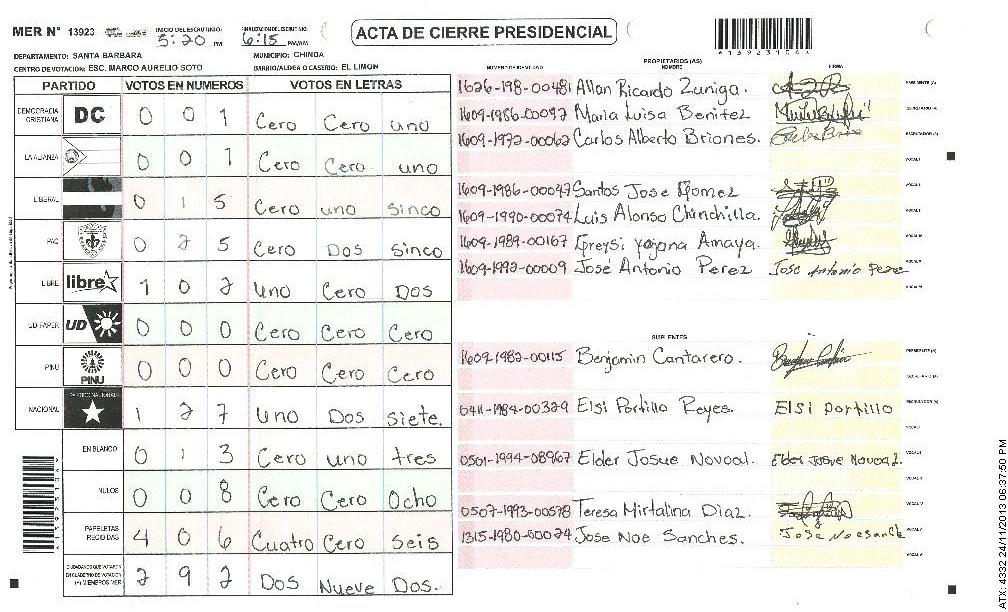 MER N° 13923 INICIO DEL ESCRUTINIO: 5:20 PM FINALIZACION DEL ESCRUTINIO: 6:15 PM/AM
ACTA DE CIERRE PRESIDENCIAL
DEPARTAMENTO: SANTA BARBARA MUNICIPIO: CHINDA
CENTRO DE VOTACION: ESC. MARCO AURELIO SOTO BARRIO/ALDEA O CASERIO: EL LIMON
PARTIDO VOTOS EN NUMEROS VOTOS EN LETRAS
DEMOCRACIA CRISTIANA DC 0 0 1 Cero Cero uno
LA ALIANZA 0 0 1 Cero Cero uno
LIBERAL 0 1 5 Cero uno Sinco
PAC 0 2 5 Cero Dos Sinco
LIBRE libre 1 0 2 Uno Cero Dos
UD-FAPER UD 0 0 0 Cero Cero Cero
PINU PINU 0 0 0 Cero Cero Cero
NACIONAL PARTIDO NACIONAL 1 2 7 Uno Dos Siete.
EN BLANCO 0 1 3 Cero uno tres
NULOS 0 0 8 Cero Cero Ocho
PAPELETAS RECIBIDAS 4 0 6 Cuatro Cero Seis
CIUDADANOS QUE VOTARON EN CUADERNO DE VOTACION (+) MIEMBROS MER 2 9 2 Dos Nueve Dos.
PROPIETARIOS (AS)
NUMERO DE IDENTIDAD NOMBRE FIRMA
1626-198-00481 Allan Ricardo Zuniga. PRESIDENTE (A)
1609-1986-00097 Maria Luisa Benitez SECRETARIO (A)
1609-1972-00062 Carlos Alberto Briones. ESCRUTADOR (A)
VOCAL I
1609-1986-00047 Santos Jose Gomez
1609-1990-00074 Luis Alonso Chinchilla.
1609-1989-00167 Greysi Yojana Amaya.
1609-1992-00009 José Antonio Perez Jose Antonio Perez
SUPLENTES
1609-1982-00115 Benjamin Cantarero. PRESIDENTE (A)
SECRETARIO (A)
0411-1984-00329 Elsi Portillo Reyes. Elsi portillo ESCRUTADOR (A)
0501-1994-08967 Elder Josue Novoal. Elder Josue Novoal.
0507-1993-00578 Teresa Mirtalina Diaz.
1315-1980-00074 Jose Noe Sanches.
ATX: 4332 24/11/2013 06:37:50 PM